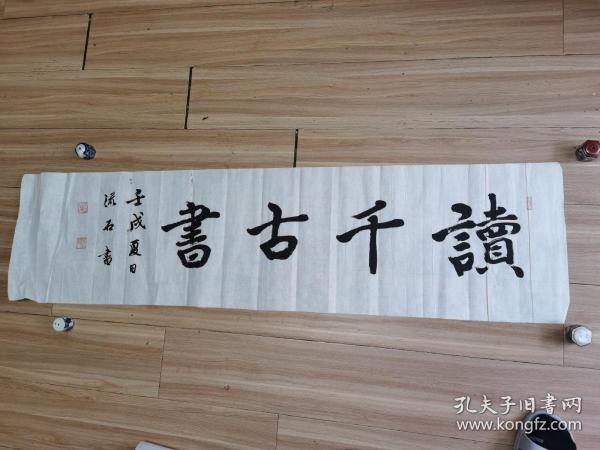 讀千古書
壬戌夏日
流石書
孔夫子旧書网
www.kongfz.com